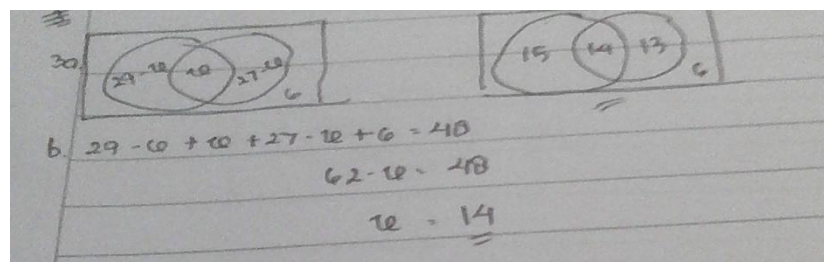 3a. 29-x x 27-x 6 15 14 13 6
b. 29 - x + x + 27 - x + 6 = 48
62 - x = 48
x = 14